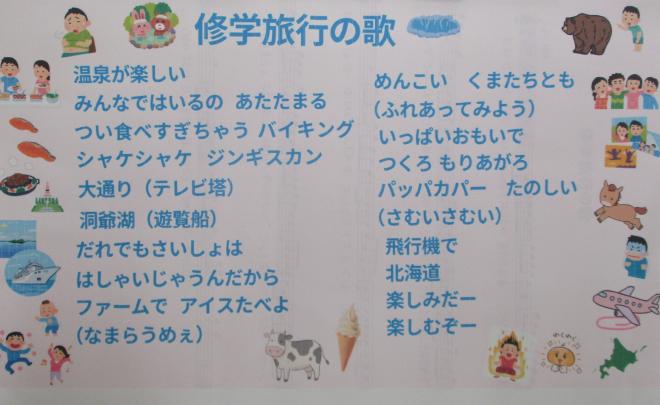 修学旅行の歌
温泉が楽しい
みんなではいるの あたたまる
つい食べすぎちゃう バイキング
シャケシャケ ジンギスカン
大通り（テレビ塔）
洞爺湖（遊覧船）
だれでもさいしょは
はしゃいじゃうんだから
ファームで アイスたべよ
（なまらうめぇ）
めんこい くまたちとも
（ふれあってみよう）
いっぱいおもいで
つくろ もりあがろ
パッパカパー たのしい
（さむいさむい）
飛行機で
北海道
楽しみだー
楽しむぞー
わくわく